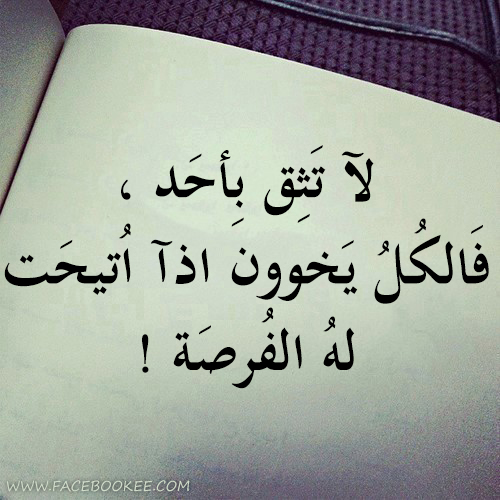 لآ تَثِق بِأحَد ،
فَالكُلُ يَخوون اذآ اُتيحَت
لهُ الفُرصَة !
WWW.FACEBOOKEE.COM